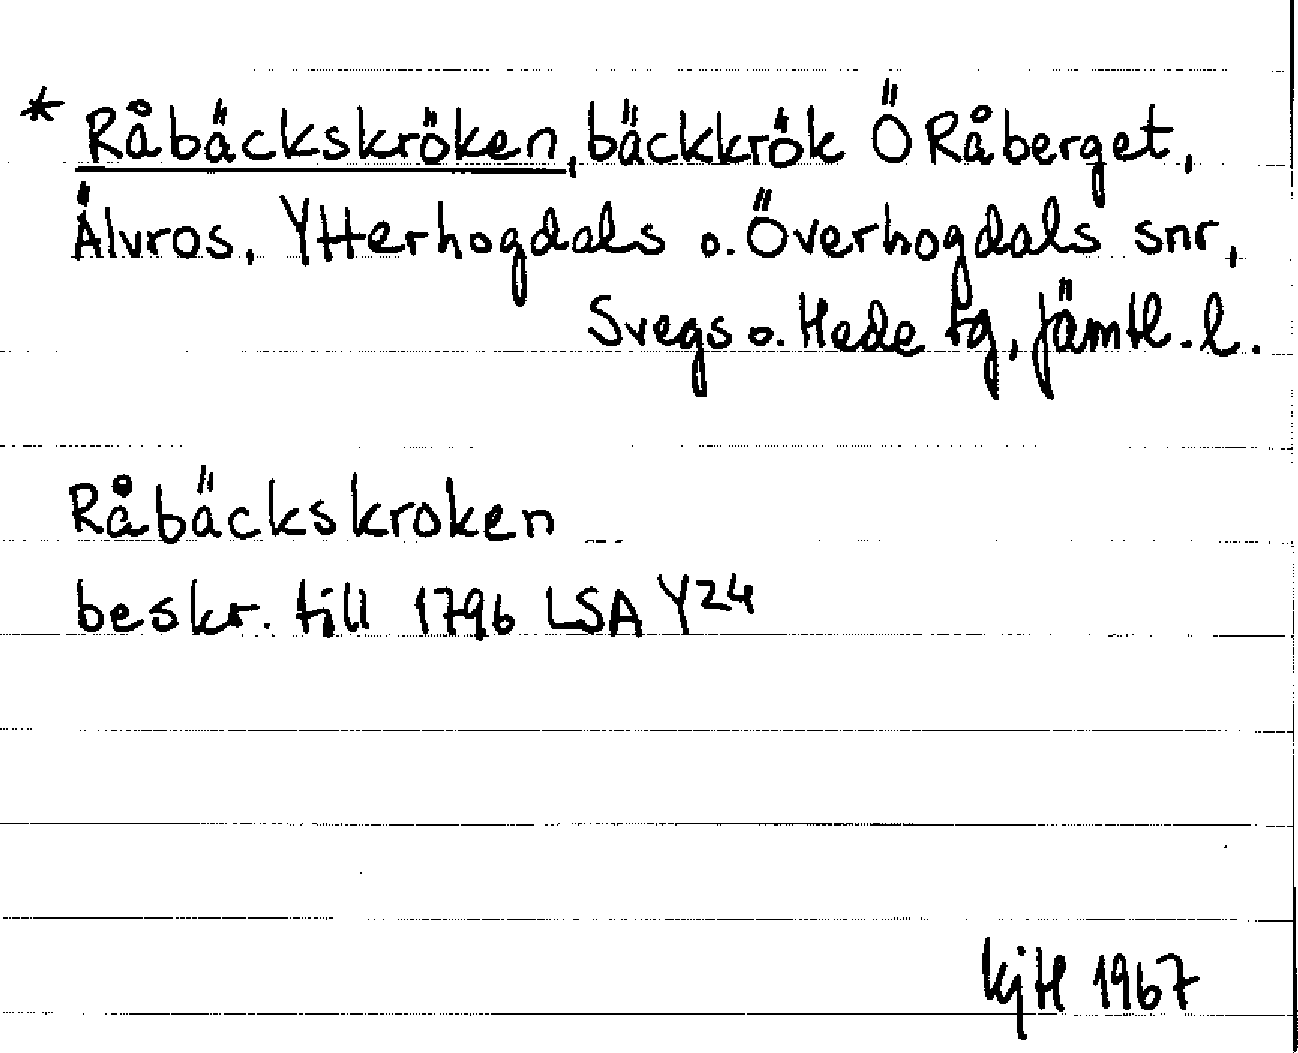 * Råbäckskröken, bäckkrök Ö Råberget,
Älvros, Ytterhogdals o. Överhogdals snr,
Svegs o. Hede tg, Jämtl. l.
Råbäckskroken
beskr. till 1796 LSA Y24
kjtl 1967